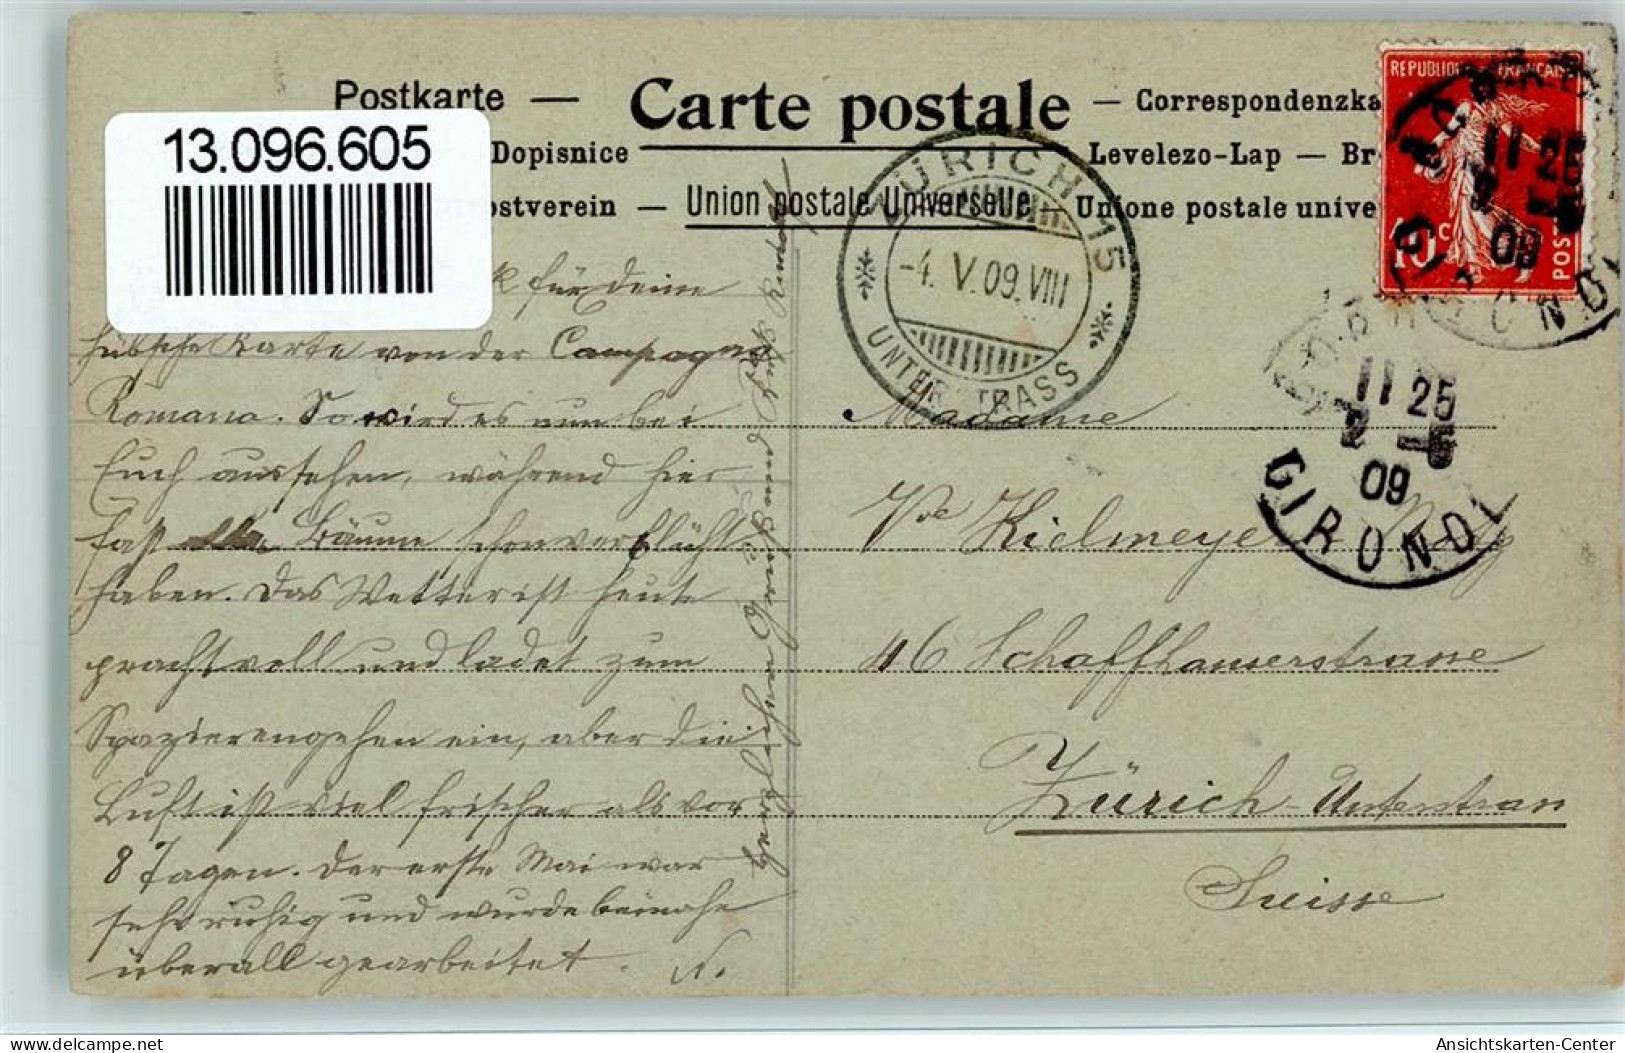 Postkarte — Carte postale — Correspondenzka
13.096.605
Dopisnice
Levelezo-Lap — Br
ostverein — Union postale Universelle
Unione postale unive
REPUBLIQUE FRANCAISE
10 c
POS
ZÜRICH 15
-4. V. 09. VIII
UNTERSTRASS
11 25
2 - 5
09
GIRONDE
11 25
2 - 5
09
GIRONDE
k für deine
hübsche Karte von der Campagna
Romana. So wird es nun bei
Euch aussehen, während hier
fast alle Bäume schon verblüht
haben. Das Wetter ist heute
prachtvoll und ladet zum
Spazierengehen ein, aber die
Luft ist viel frischer als vor
8 Tagen. Der erste Mai war
sehr ruhig und wurde beinahe
überall gearbeitet. N.
Herzlichen Gruss und Kuss
Madame
Vve Kielmeyer
46 Schaffhauserstrasse
Zürich-Unterstrass
Suisse
https://www.delcampe.net
Ansichtskarten-Center